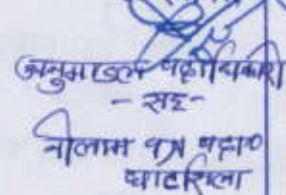 अनुमण्डल पदाधिकारी
- सह -
नीलाम पत्र पदा०
घाटशिला